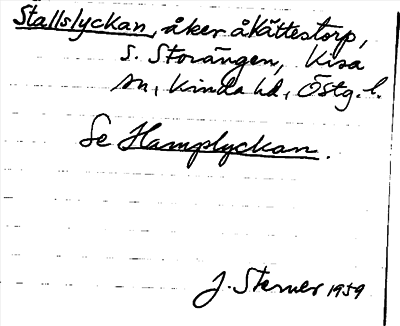 Stallslyckan, åker å Kättestorp,
S. Storängen, Kisa
sn, Kinda hd, Östg. l.
Se Hamplyckan.
J. Sterner 1959